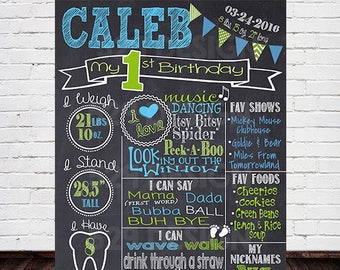 CALEB
03-24-2016
8 lbs 15 oz 21" long
My 1st Birthday
I Weigh
21 LBS
10 OZ.
I Stand
28.5"
TALL
I Have
8
I
LOVE
music
DANCING
Itsy Bitsy
Spider
Peek-A-Boo
LOOKING OUT THE
WINDOW
I CAN SAY
Mama
(FIRST WORD)
Dada
Bubba BALL
BUH BYE
I CAN
wave walk
drink through a straw
FAV SHOWS
• Mickey Mouse
Clubhouse
• Goldie & Bear
• Miles From
Tomorrowland
FAV FOODS
• Cheerios
• Cookies
• Green Beans
• Lemon & Rice
Soup
MY
NICKNAMES